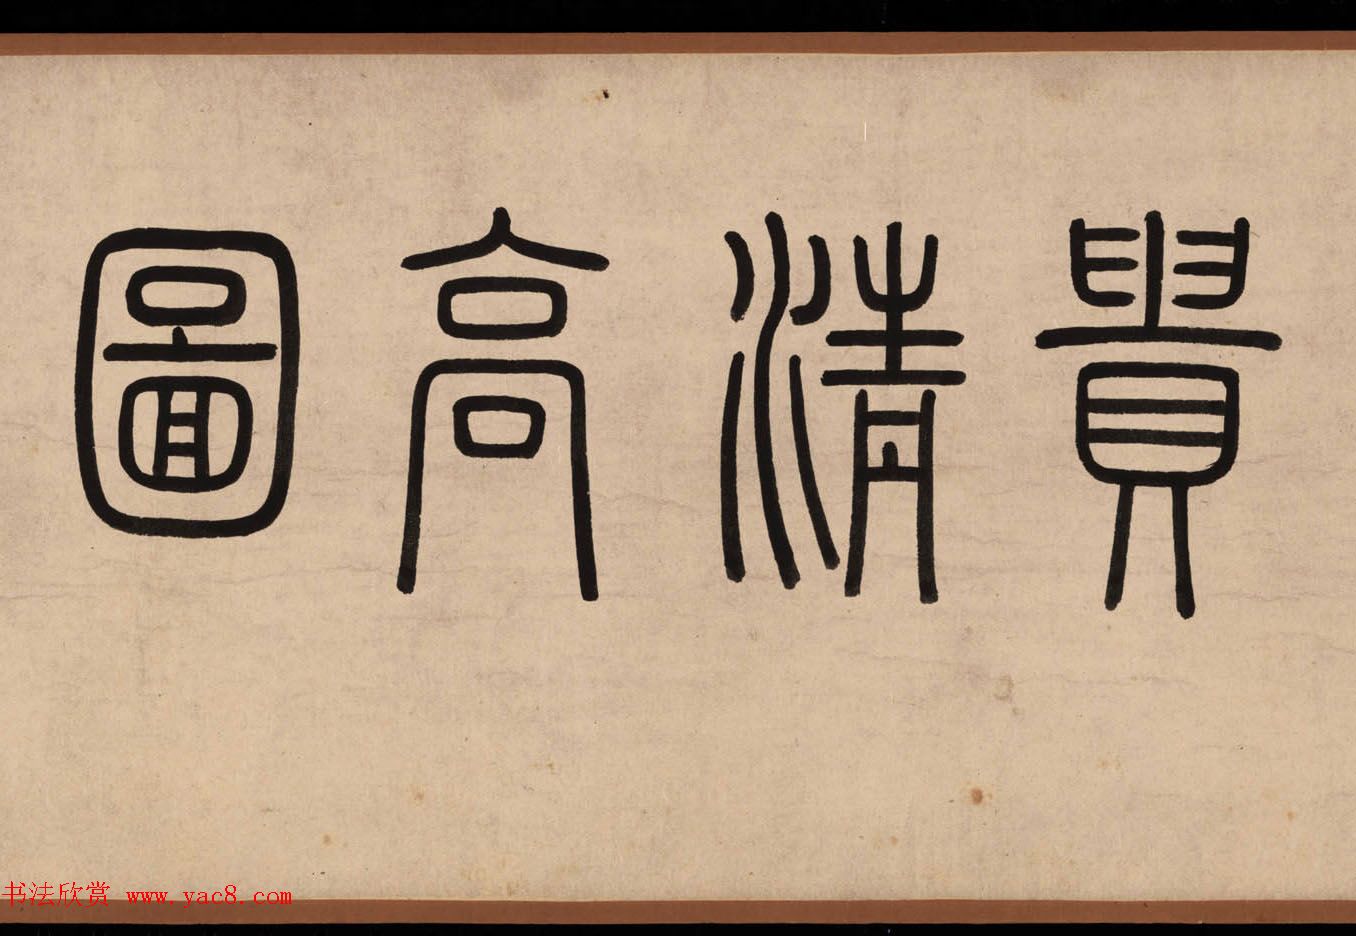 貴清高圖
书法欣赏 www.yac8.com